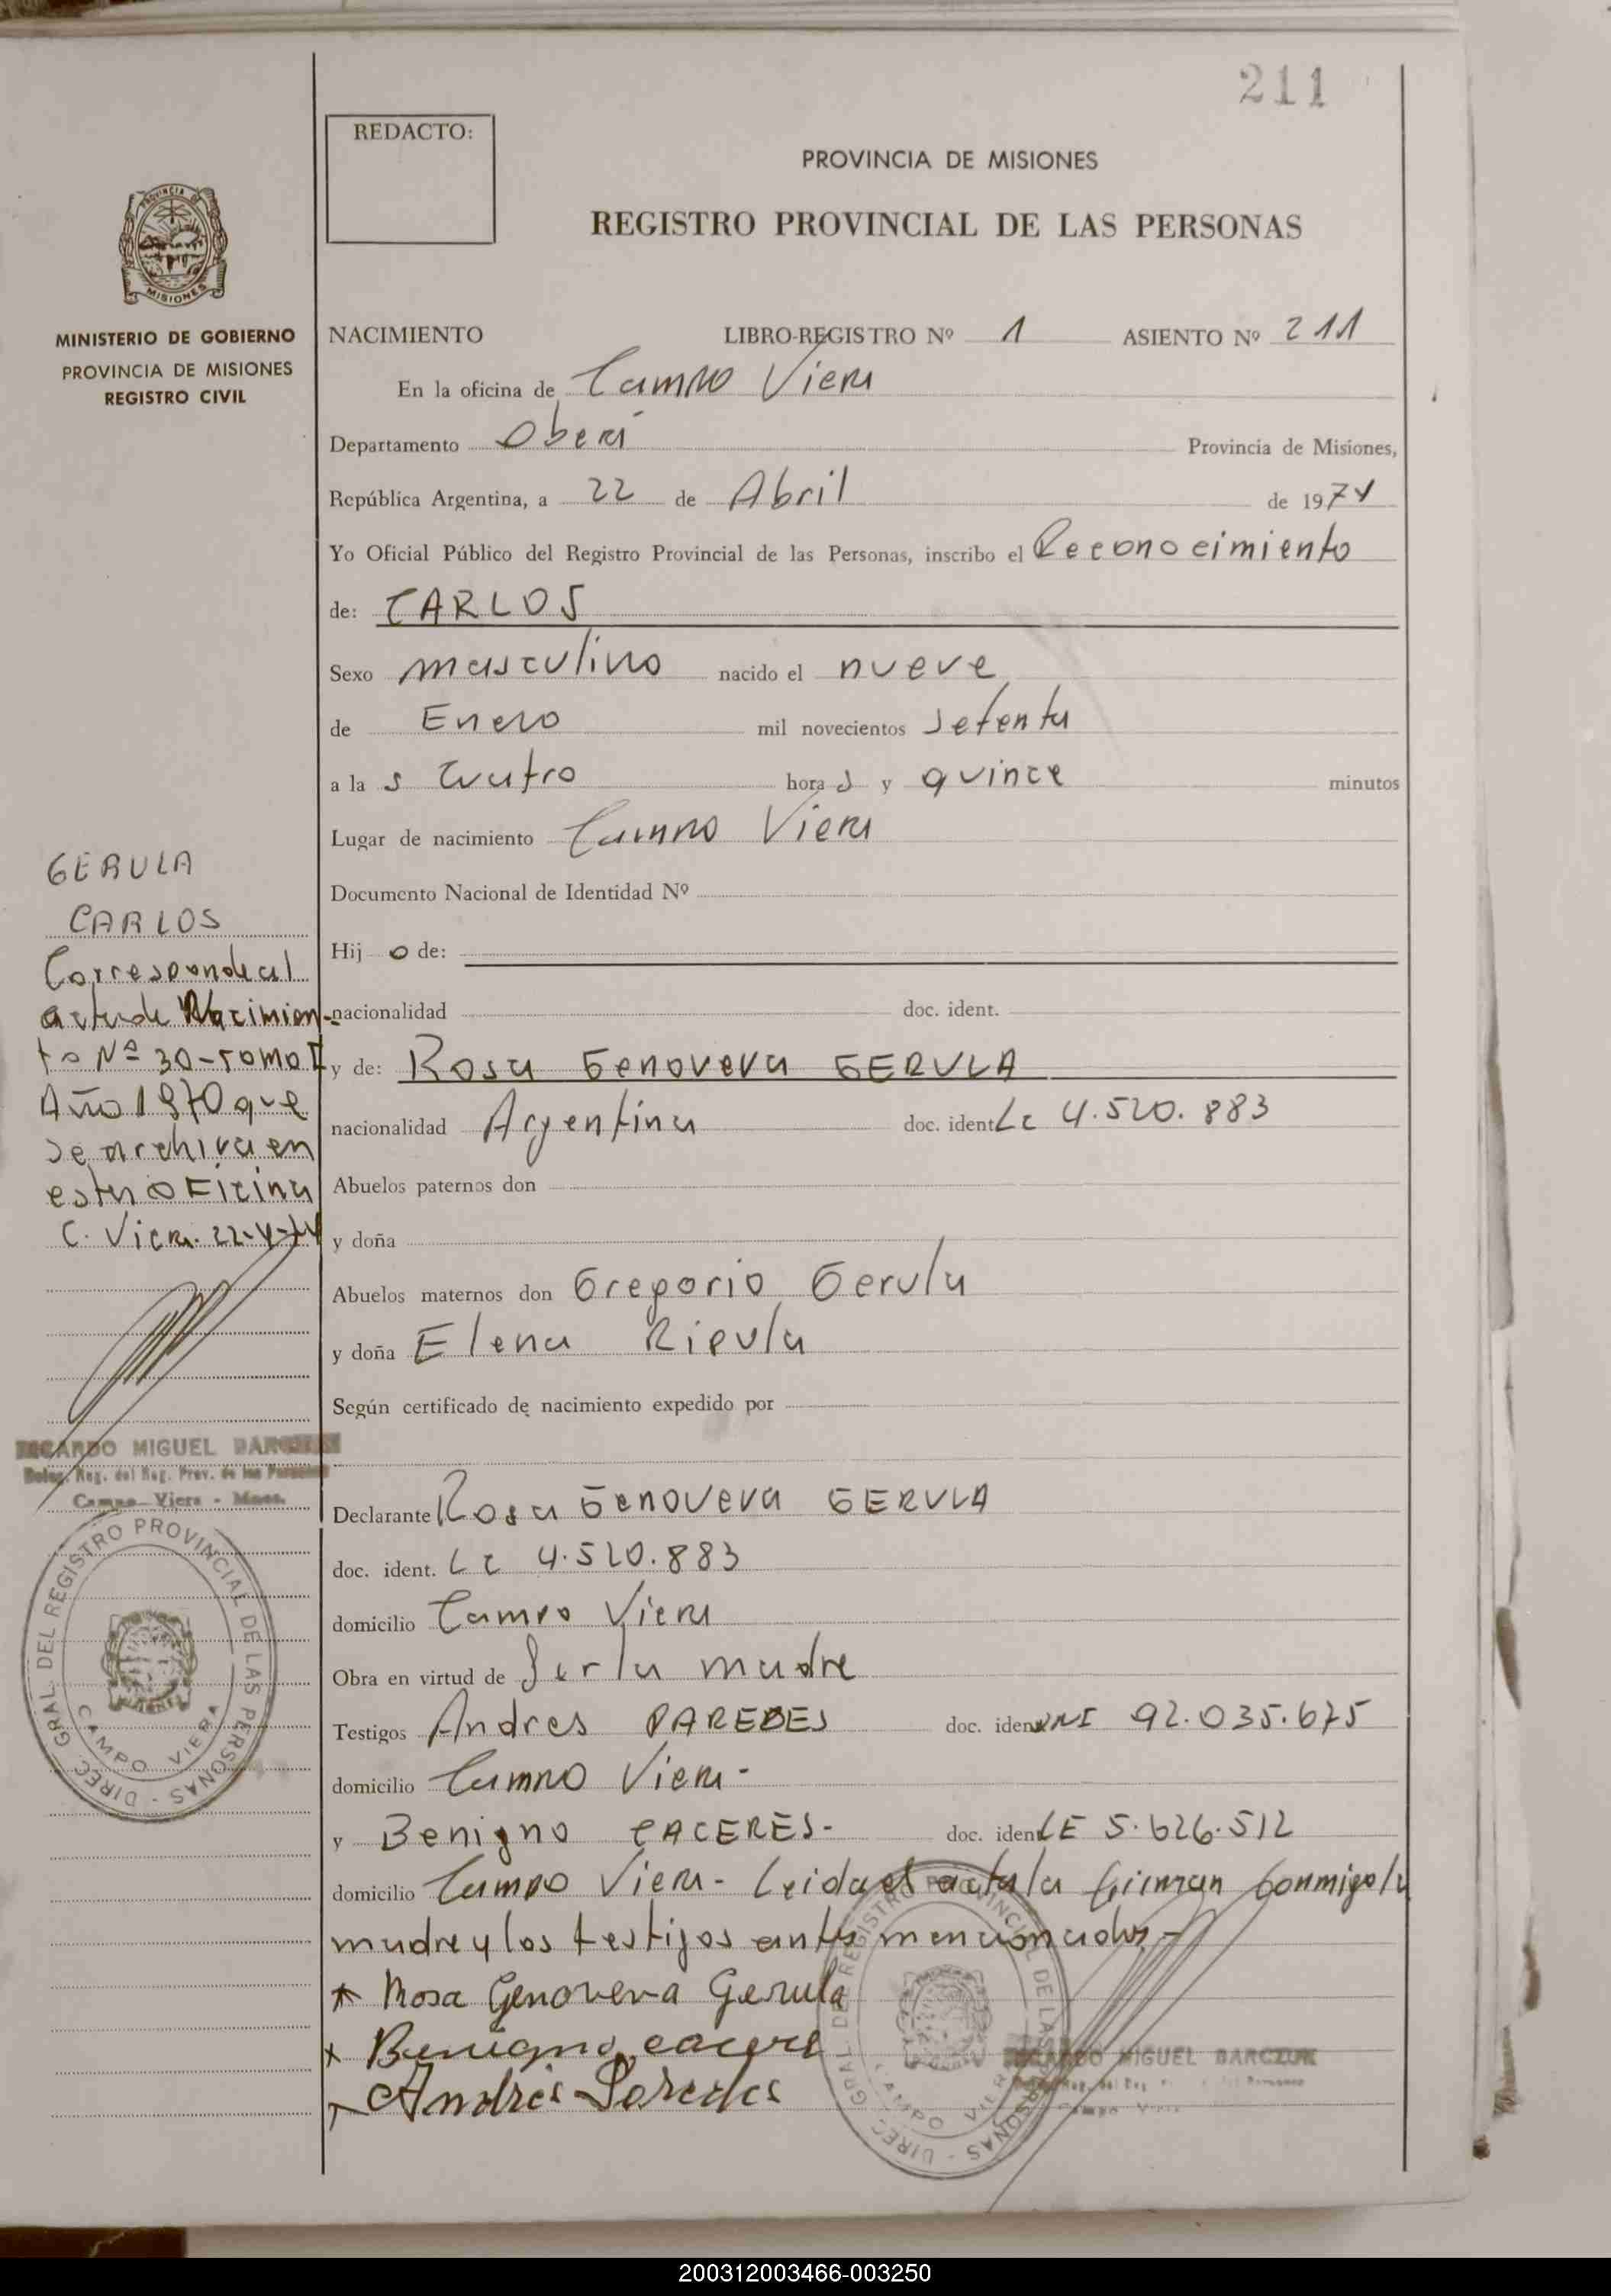 211
REDACTO:
PROVINCIA DE MISIONES
REGISTRO PROVINCIAL DE LAS PERSONAS
PROVINCIA DE
MISIONES
MINISTERIO DE GOBIERNO
PROVINCIA DE MISIONES
REGISTRO CIVIL
NACIMIENTO LIBRO-REGISTRO Nº 1 ASIENTO Nº 211
En la oficina de Campo Viera
Departamento Oberá Provincia de Misiones,
República Argentina, a 22 de Abril de 1974
Yo Oficial Público del Registro Provincial de las Personas, inscribo el Reconocimiento
de: CARLOS
Sexo masculino nacido el nueve
de Enero mil novecientos setenta
a la s cuatro hora s y quince minutos
Lugar de nacimiento Campo Viera
Documento Nacional de Identidad Nº
Hij o de:
nacionalidad doc. ident.
y de: Rosa Genoveva GERULA
nacionalidad Argentina doc. ident Lc 4.520.883
Abuelos paternos don
y doña
Abuelos maternos don Gregorio Gerula
y doña Elena
Según certificado de nacimiento expedido por
Declarante Rosa Genoveva GERULA
doc. ident. Lc 4.520.883
domicilio Campo Viera
Obra en virtud de Ser la madre
Testigos Andres PAREDES doc. iden DNI 92.035.675
domicilio Campo Viera-
y Benigno CACERES- doc. iden LE 5.626.512
domicilio Campo Viera- Leida el acta la firman conmigo la
madre y los testigos antes mencionados-
Rosa Genoveva Gerula
Benigno cacere
Andrés Paredes
GERULA
CARLOS
Corresponde al
acta de Nacimien-
to Nº 30-Tomo I
Año 1970 que
se archiva en
esta oficina
C. Viera. 22-4-74
RICARDO MIGUEL BARCZUK
Deleg. Reg. del Reg. Prov. de las Personas
Campo Viera - Mnes.
DIREC. GRAL. DEL REGISTRO PROVINCIAL DE LAS PERSONAS
CAMPO VIERA
DIREC. GRAL. DEL REGISTRO PROVINCIAL DE LAS PERSONAS
CAMPO VIERA
RICARDO MIGUEL BARCZUK
Campo Viera
200312003466-003250